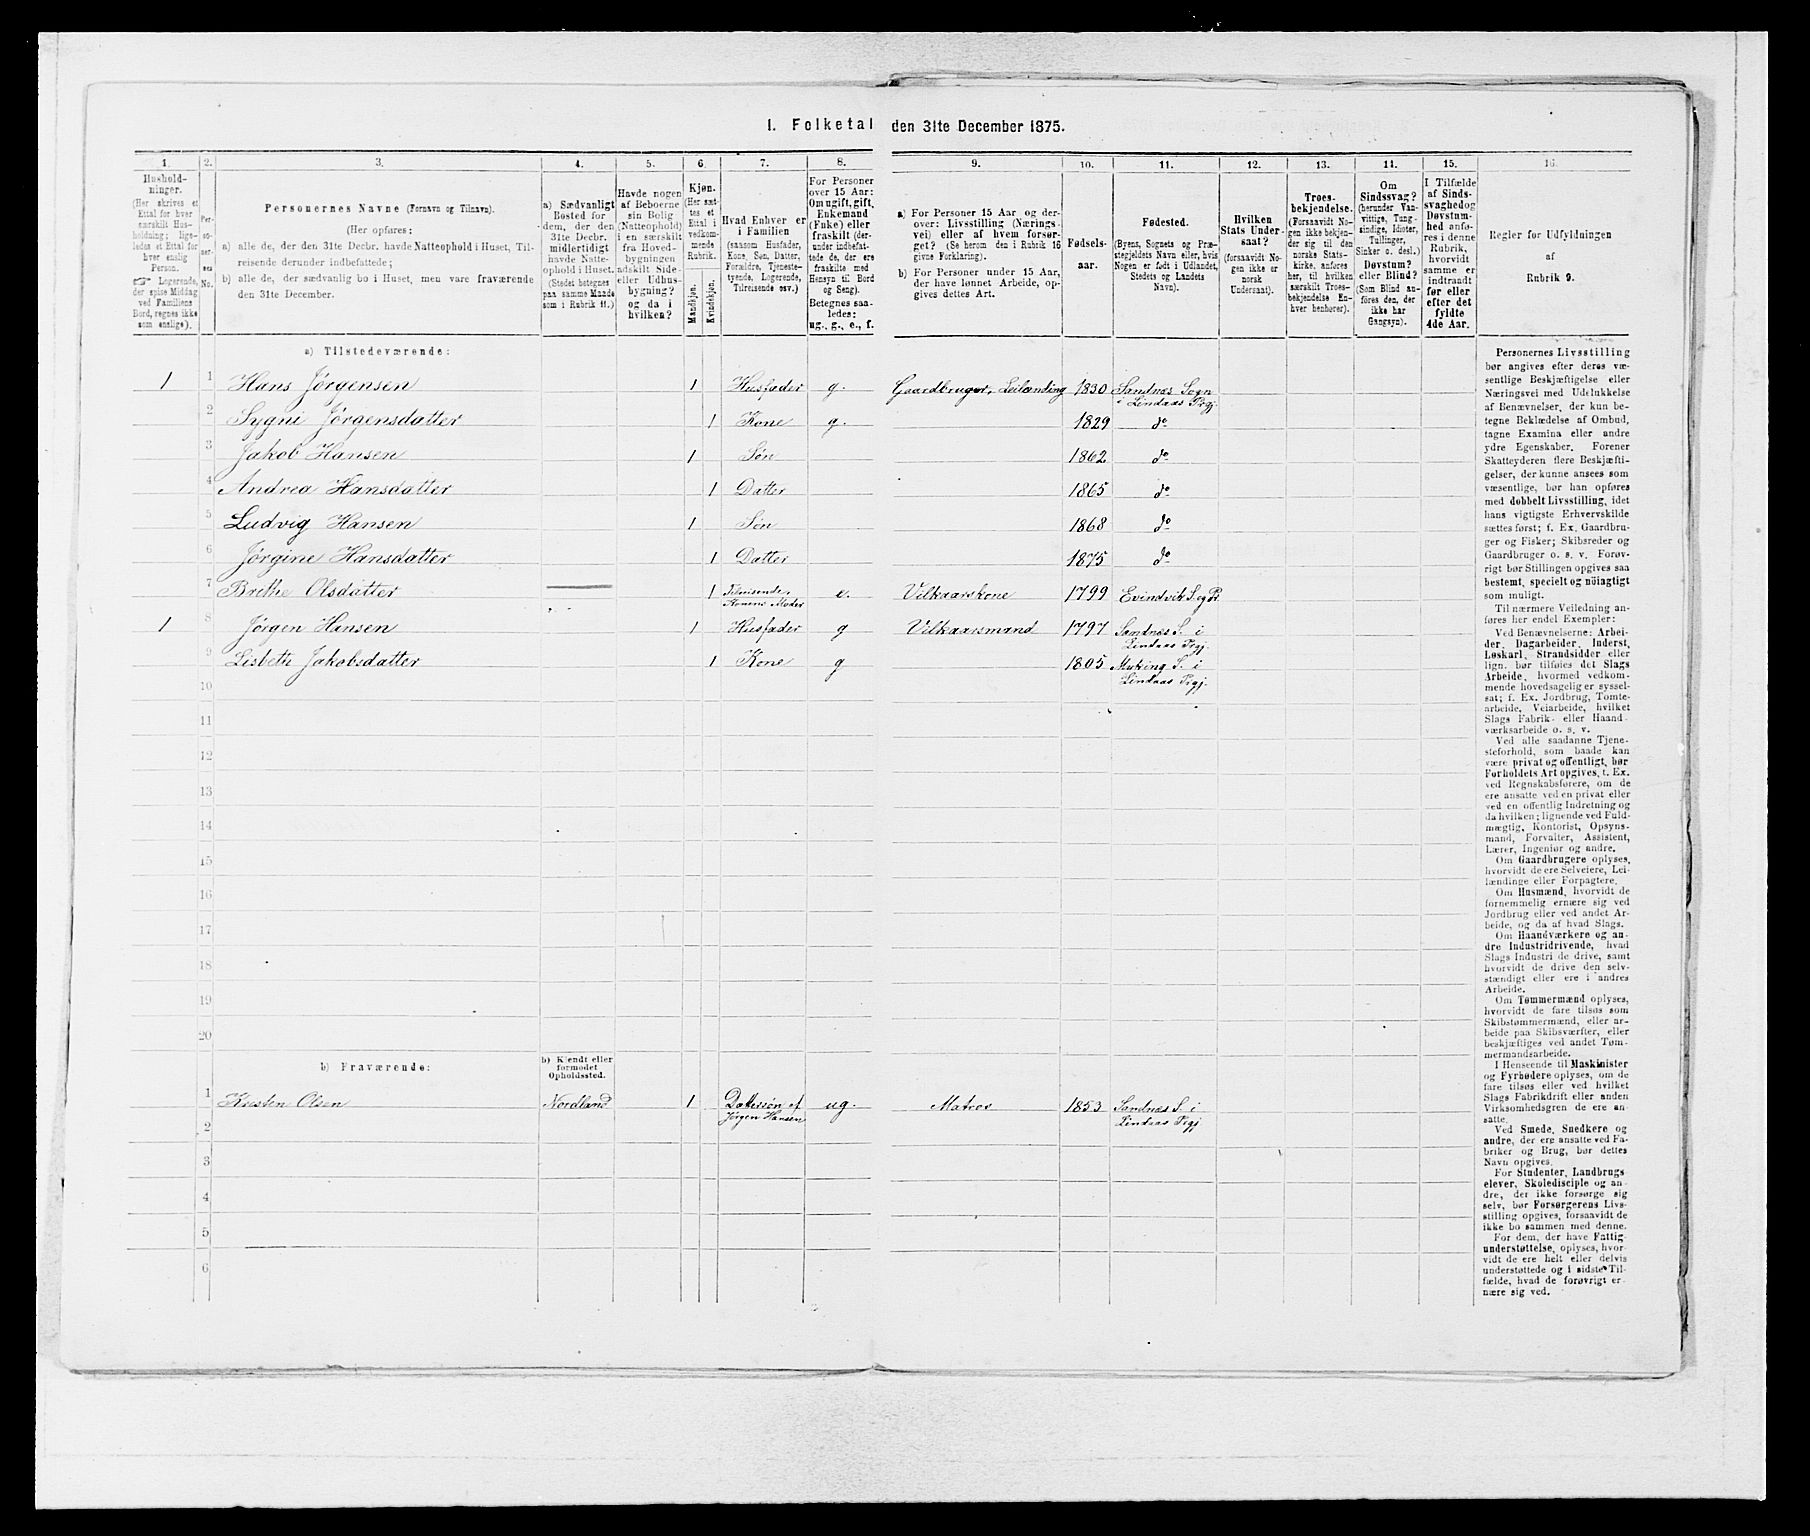 1. Folketal den 31te December 1875.
1. 2. 3. 4. 5. 6. 7. 8. 9. 10. 11. 12. 13. 14. 15. 16.
Hushold-
ninger.
(Her skrives et
Ettal for hver
særskilt Hus-
holdning; lige-
ledes et Ettal for
hver enslig
Person.
☞ Logerende,
der spise Middag
ved Familiens
Bord, regnes ikke
som enslige).
Per-
so-
ner-
nes
No.
Personernes Navne (Fornavn og Tilnavn).
(Her opføres:
a) alle de, der den 31te Decbr. havde Natteophold i Huset, Til-
reisende derunder indbefattede;
b) alle de, der sædvanlig bo i Huset, men vare fraværende
den 31te December.
a) Sædvanligt
Bosted for
dem, der den
31te Decbr.
midlertidigt
havde Natte-
ophold i Huset.
(Stedet betegnes
paa samme Maade
som i Rubrik 11.)
Havde nogen
af Beboerne
sin Bolig
(Natteophold)
i en særskilt
fra Hoved-
bygningen
adskilt Side-
eller Udhus-
bygning?
og da i
hvilken?
Kjøn.
(Her sæt-
tes et
Ettal i
vedkom-
mende
Rubrik.
Mandkjøn.
Kvindekjøn.
Hvad Enhver er
i Familien
(saasom Husfader,
Kone, Søn, Datter,
Forældre, Tjeneste-
tyende, Logerende,
Tilreisende osv.)
For Personer
over 15 Aar:
Om ugift, gift,
Enkemand
(Enke) eller
fraskilt (der-
under indbefat-
tede de, der ere
fraskilte med
Hensyn til Bord
og Seng).
Betegnes saa-
ledes:
ug., g., e., f.
a) For Personer 15 Aar og der-
over: Livsstilling (Nærings-
vei) eller af hvem forsør-
get? (Se herom den i Rubrik 16
givne Forklaring).
b) For Personer under 15 Aar,
der have lønnet Arbeide, op-
gives dettes Art.
Fødsels-
aar.
Fødested.
(Byens, Sognets og Præ-
stegjeldets Navn eller, hvis
Nogen er født i Udlandet,
Stedets og Landets
Navn).
Hvilken
Stats Under-
saat?
(forsaavidt No-
gen ikke er
norsk
Undersaat).
Troes-
bekjendelse.
(Forsaavidt No-
gen ikke bekjen-
der sig til den
norske Stats-
kirke, anføres
her, til hvilken
særskilt Troes-
bekjendelse En-
hver henhører).
Om
Sindssvag?
(herunder Van-
vittige, Tung-
sindige, Idioter,
Tullinger,
Sinker o. desl.)
Døvstum?
eller Blind?
(Som Blind an-
føres den, der
ikke har
Gangsyn).
I Tilfælde
af Sinds-
svaghed og
Døvstum-
hed anfø-
res i denne
Rubrik,
hvorvidt
samme er
indtraadt
før eller
efter det
fyldte
4de Aar.
Regler for Udfyldningen
af
Rubrik 9.
a) Tilstedeværende:
1 1 Hans Jørgensen 1 Husfader g. Gaardbruger, Leilænding 1830 Sandnes Sogn
i Lindaas Prgj.
2 Sygni Jørgensdatter 1 Kone g. 1829 do
3 Jakob Hansen 1 Søn 1862 do
4 Andrea Hansdatter 1 Datter 1865 do
5 Ludvig Hansen 1 Søn 1868 do
6 Jørgine Hansdatter 1 Datter 1875 do
7 Brithe Olsdatter 1 Tilreisende, e. Vilkaarskone 1799 Evindvik S. og Pr.
Konens Moder
1 8 Jørgen Hansen 1 Husfader g Vilkaarsmand 1797 Sandnes S. i
Lindaas Prgj.
9 Lisbeth Jakobsdatter 1 Kone g 1805 Myking S. i
Lindaas Prgj.
10
11
12
13
14
15
16
17
18
19
20
b) Fraværende:
b) Kjendt eller
formodet
Opholdssted.
1 Kresten Olsen Nordland 1 Dattersøn af ug. Matros 1853 Sandnes S. i
Jørgen Hansen Lindaas Prgj
2
3
4
5
6
Personernes Livsstilling
bør angives efter deres væ-
sentlige Beskjæftigelse eller
Næringsvei med Udelukkelse
af Benævnelser, der kun be-
tegne Beklædelse af Ombud,
tagne Examina eller andre
ydre Egenskaber. Forener
Skatteyderen flere Beskjæfti-
gelser, der kunne ansees som
væsentlige, bør han opføres
med dobbelt Livsstilling, idet
hans vigtigste Erhvervskilde
sættes først; f. Ex. Gaardbru-
ger og Fisker; Skibsreder og
Gaardbruger o. s. v. Forøv-
rigt bør Stillingen opgives saa
bestemt, specielt og nøiagtigt
som muligt.
Til nærmere Veiledning an-
føres her endel Exempler:
Ved Benævnelserne: Arbei-
der, Dagarbeider, Inderst,
Løskarl, Strandsidder eller
lign. bør tilføies det Slags
Arbeide, hvormed vedkom-
mende hovedsagelig er syssel-
sat; f. Ex. Jordbrug, Tomte-
arbeide, Veiarbeide, hvilket
Slags Fabrik- eller Haand-
værksarbeide o. s. v.
Ved alle saadanne Tjene-
steforhold, som baade kan
være privat og offentligt, bør
Forholdets Art opgives, t. Ex.
ved Regnskabsførere, om de
ere ansatte ved en privat eller
ved en offentlig Indretning og
da hvilken; lignende ved Fuld-
mægtig, Kontorist, Opsyns-
mand, Forvalter, Assistent,
Lærer, Ingeniør og andre.
Om Gaardbrugere oplyses,
hvorvidt de ere Selveiere, Lei-
lændinge eller Forpagtere.
Om Husmænd, hvorvidt de
fornemmelig ernære sig ved
Jordbrug eller ved andet Ar-
beide, og da af hvad Slags.
Om Haandværkere og an-
dre Industridrivende, hvad
Slags Industri de drive, samt
hvorvidt de drive den selv-
stændigt eller ere i andres
Arbeide.
Om Tømmermænd oplyses,
hvorvidt de fare tilsøs som
Skibstømmermænd, eller ar-
beide paa Skibsværfter, eller
beskjæftiges ved andet Tøm-
mermandsarbeide.
I Henseende til Maskinister
og Fyrbødere oplyses, om de
fare tilsøs eller ved hvilket
Slags Fabrikdrift eller anden
Virksomhedsgren de ere an-
satte.
Ved Smede, Snedkere og
andre, der ere ansatte ved Fa-
briker og Brug, bør dettes
Navn opgives.
For Studenter, Landbrugs-
elever, Skoledisciple og an-
dre, der ikke forsørge sig
selv, bør Forsørgerens Livs-
stilling opgives, forsaavidt de
ikke bo sammen med denne.
For dem, der have Fattig-
understøttelse, oplyses, hvor-
vidt de ere helt eller delvis
understøttede og i sidste Til-
fælde, hvad de forøvrigt er-
nære sig ved.